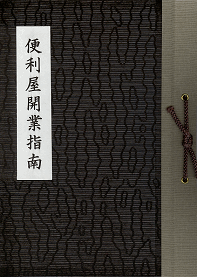 便利屋開業指南